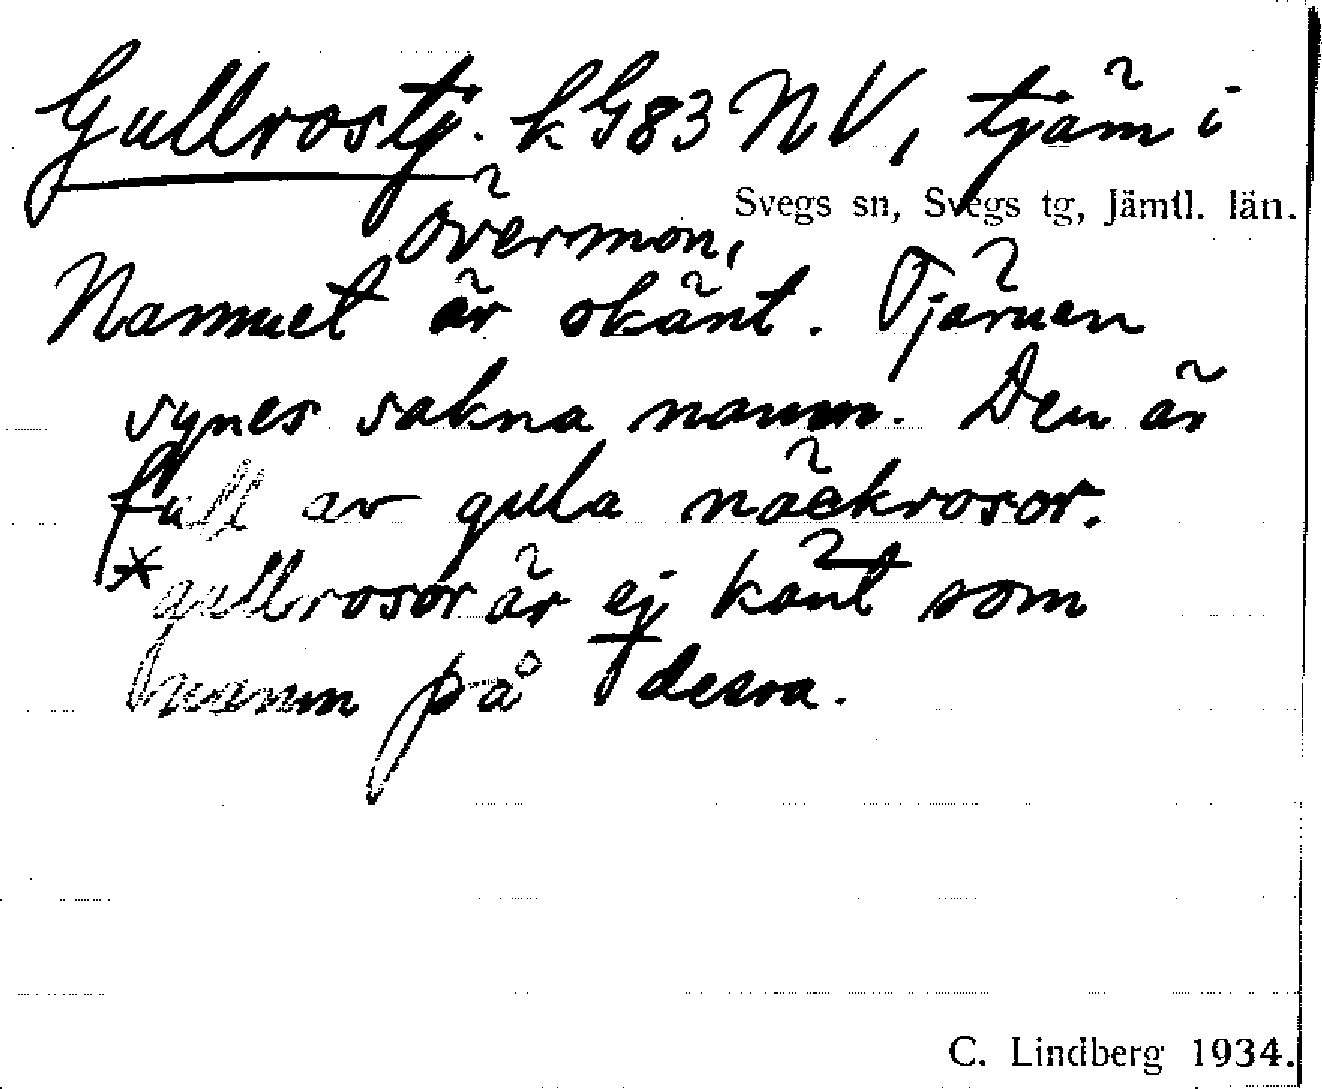 Gullrostj. k G83 NV, tjärn i
Svegs sn, Svegs tg, Jämtl. län.
Övermon,
Namnet är okänt. Tjärnen
synes sakna namn. Den är
full av gula näckrosor.
*gullrosor är ej känt som
namn på dessa.
C. Lindberg 1934.